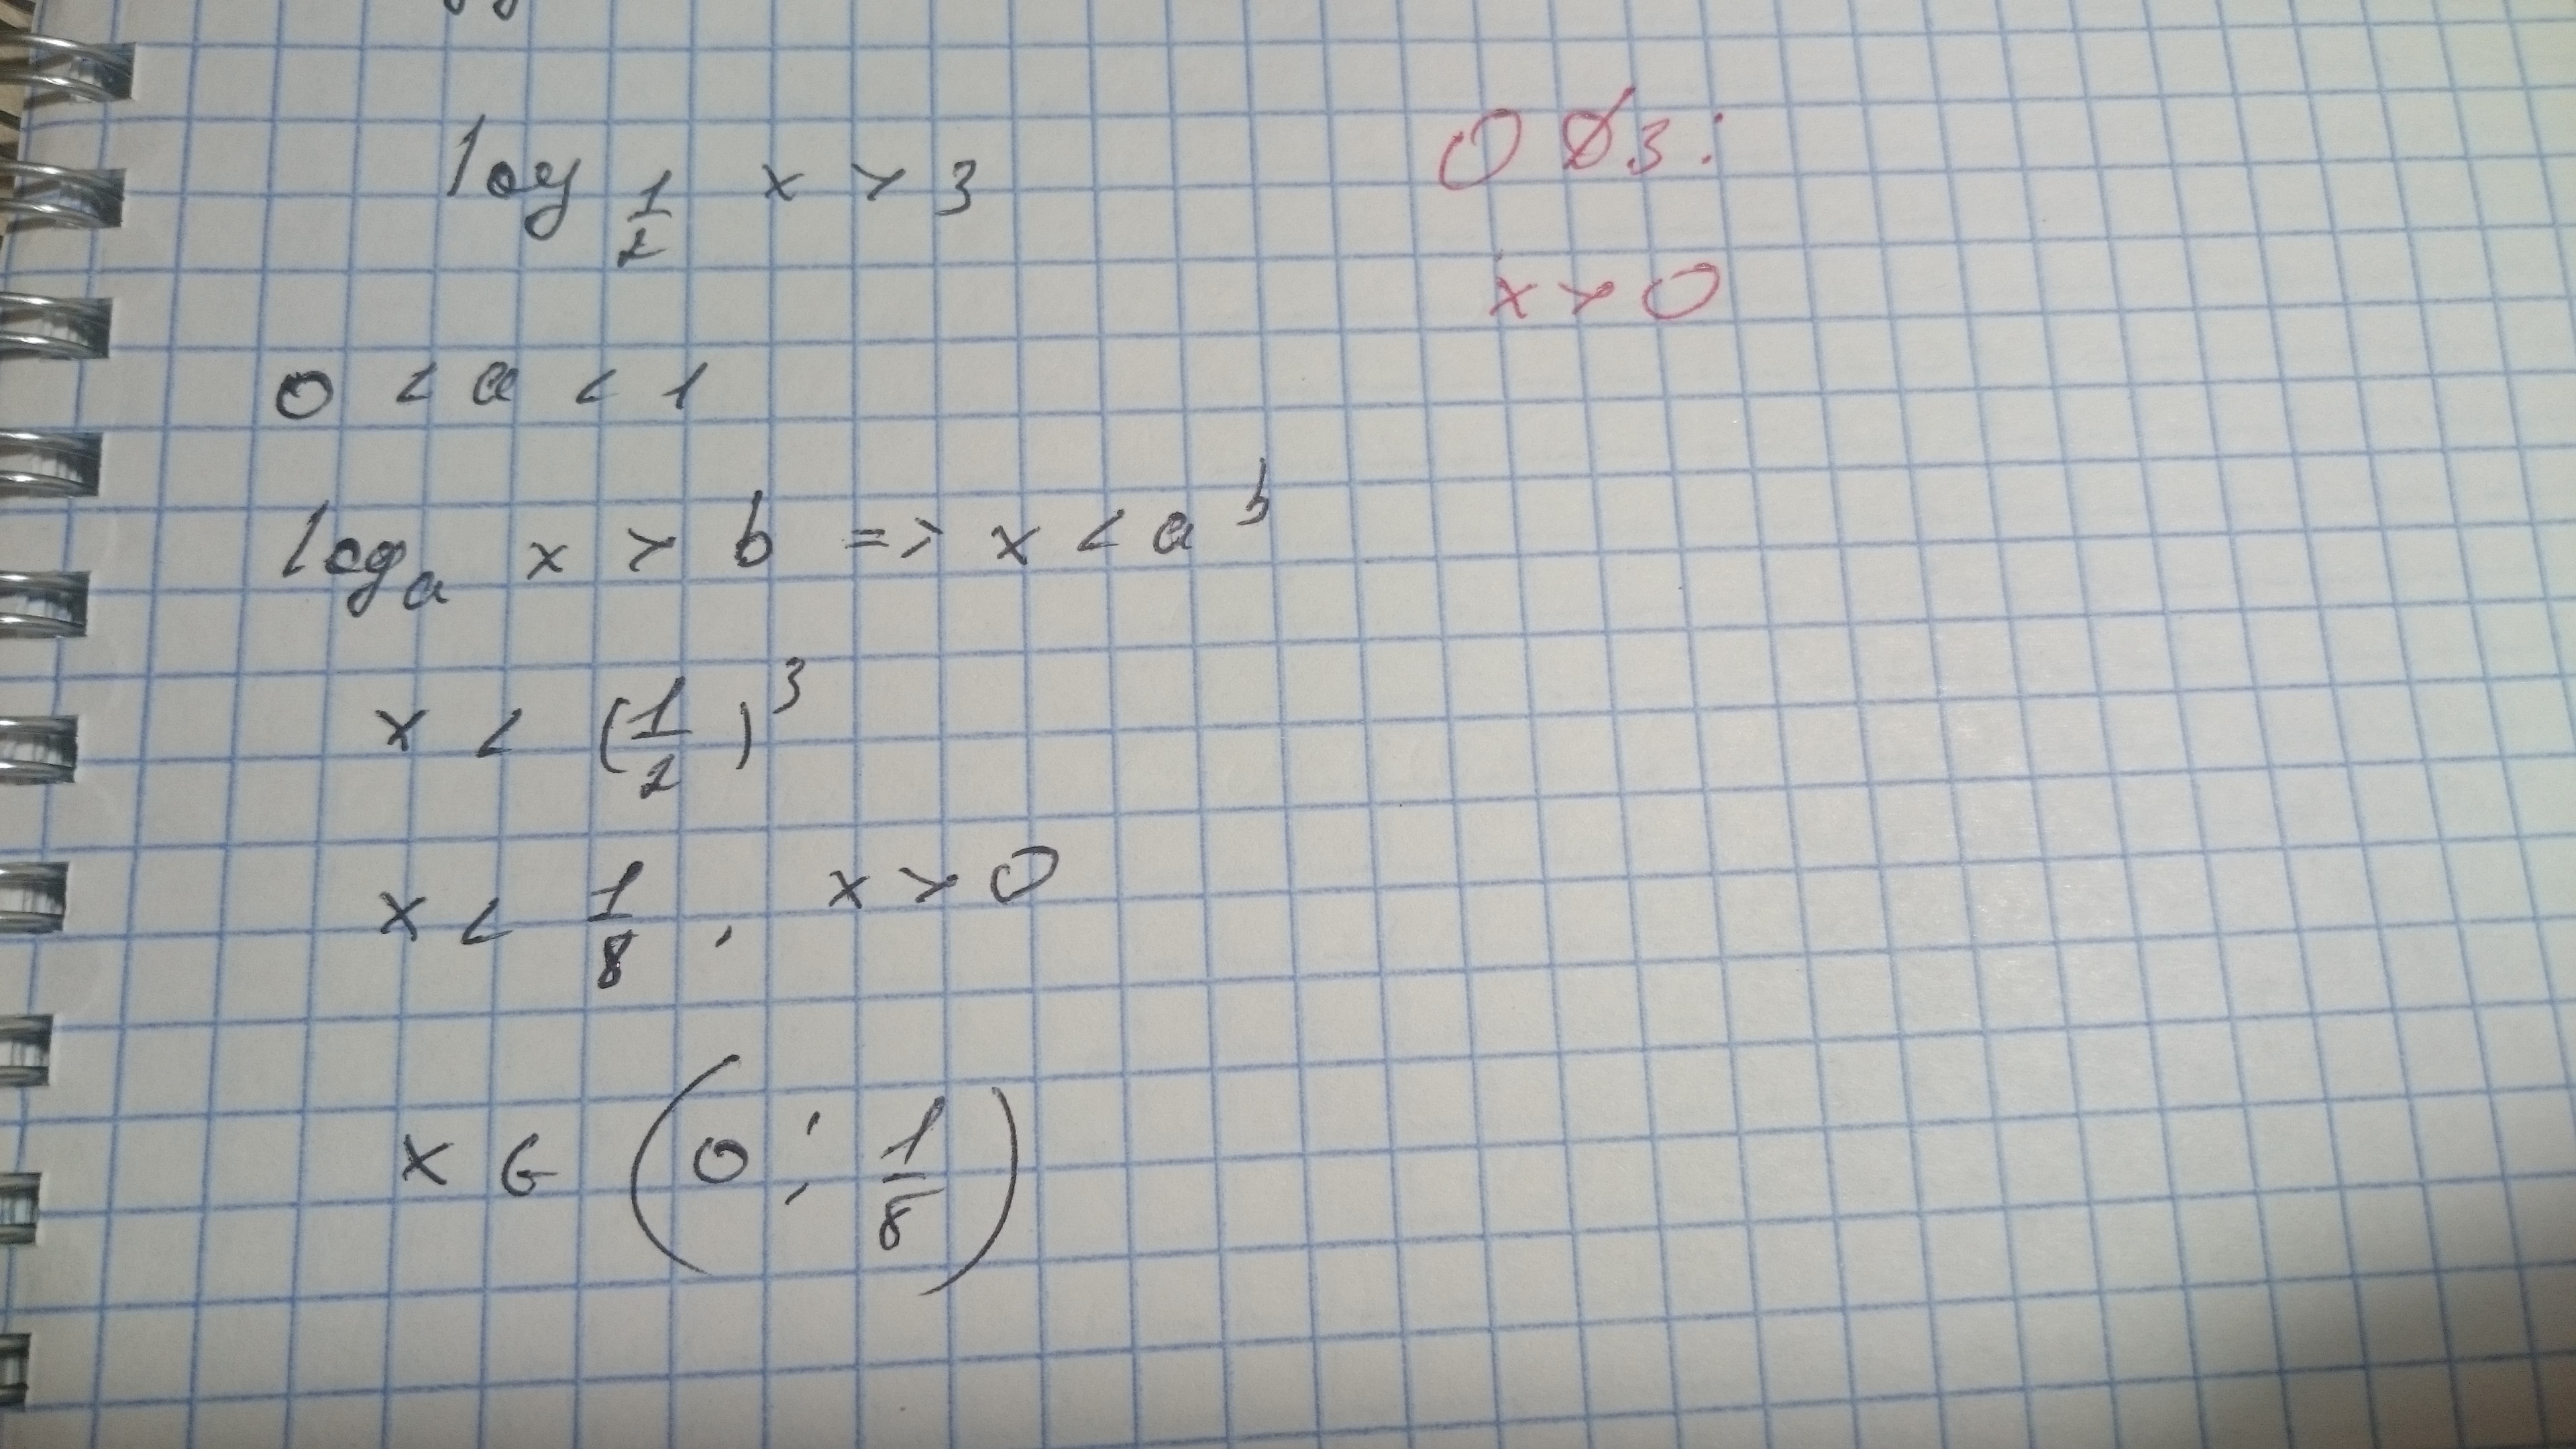 log 1/2 x > 3
ОДЗ:
x > 0
0 < a < 1
logₐ x > b => x < aᵇ
x < (1/2)³
x < 1/8, x > 0
x ∈ (0; 1/8)